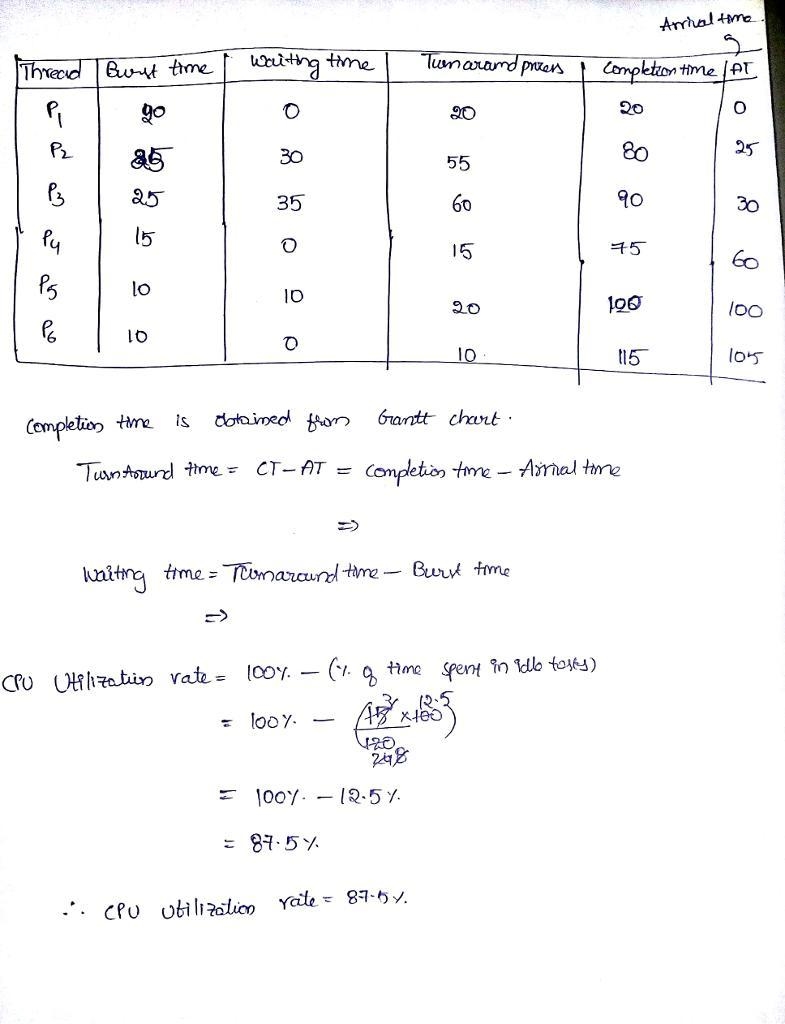 Arrival time
Thread Burst time Waiting time Turnaround process Completion time AT
P1 20 0 20 20 0
P2 25 30 55 80 25
P3 25 35 60 90 30
P4 15 0 15 75 60
P5 10 10 20 120 100
P6 10 0 10 115 105
Completion time is obtained from Grantt chart.
Turn Around time = CT - AT = Completion time - Arrival time
⇒
Waiting time = Turnaround time - Burst time
⇒
CPU Utilization rate = 100% - (% of time spent in idle tasks)
= 100% - (15/120 × 100) 3 12.5 24 8
= 100% - 12.5%
= 87.5%
∴ CPU Utilization rate = 87.5%.